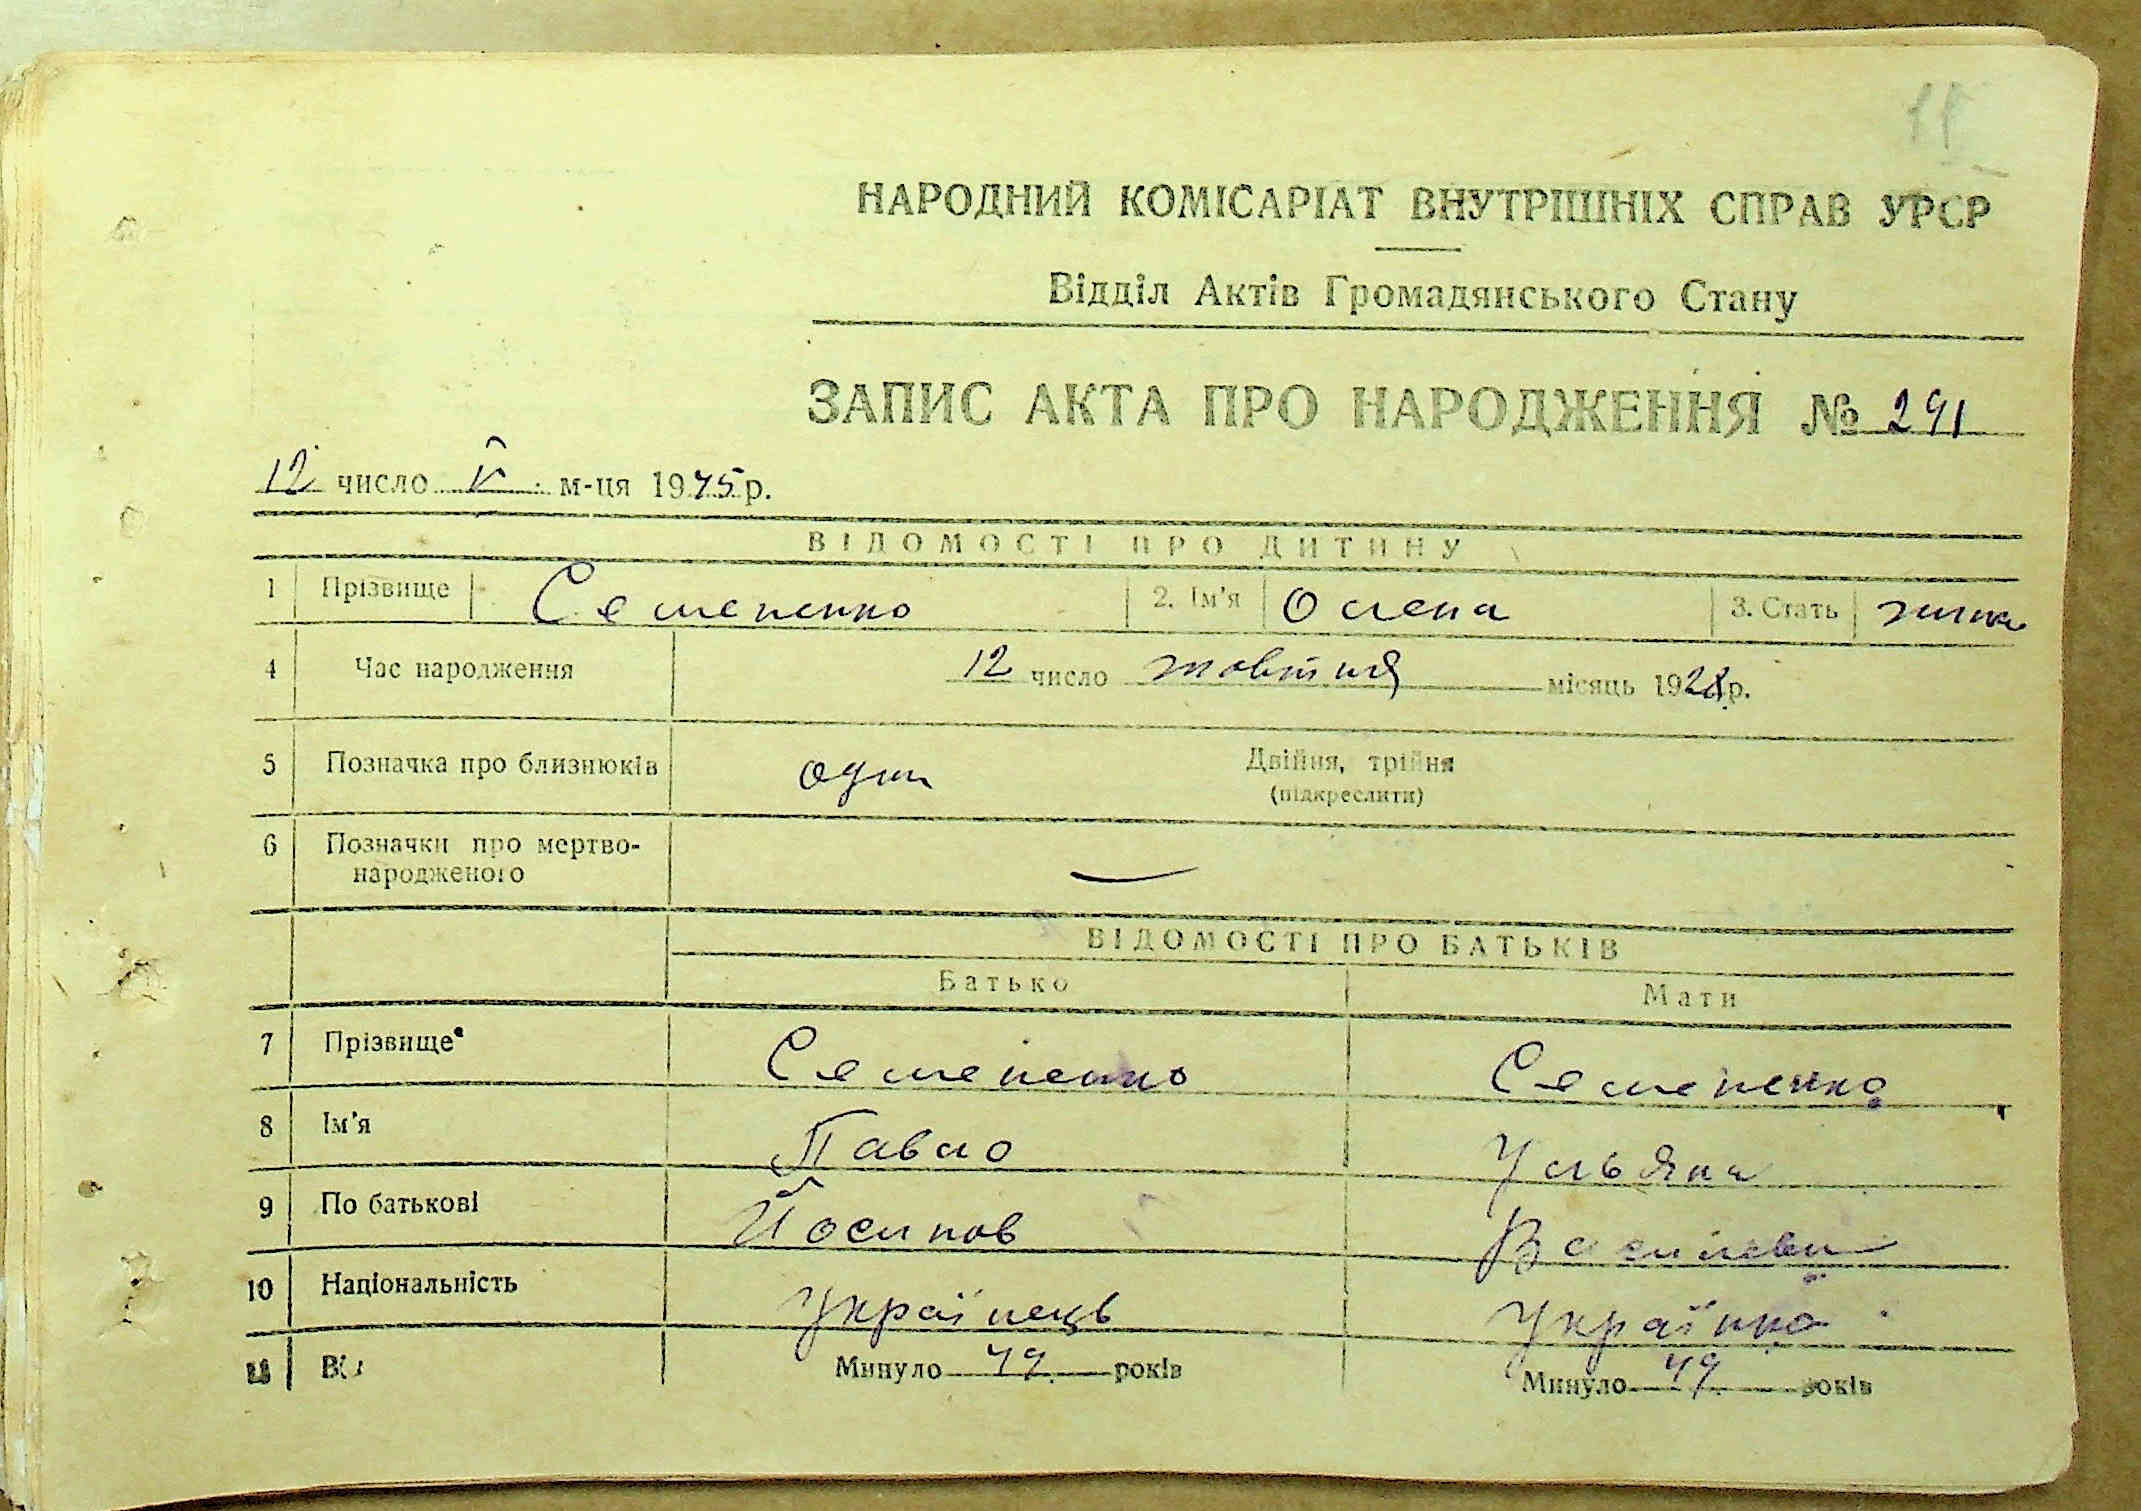 11
НАРОДНИЙ КОМІСАРІАТ ВНУТРІШНІХ СПРАВ УРСР
Відділ Актів Громадянського Стану
ЗАПИС АКТА ПРО НАРОДЖЕННЯ № 291
12 число V м-ця 1945 р.
ВІДОМОСТІ ПРО ДИТИНУ
1 Прізвище Семененко 2. Ім'я Олена 3. Стать жінка
4 Час народження 12 число жовтня місяць 1928 р.
5 Позначка про близнюків один Двійня, трійня
(підкреслити)
6 Позначки про мертво-
народженого —
ВІДОМОСТІ ПРО БАТЬКІВ
Батько Мати
7 Прізвище Семененко Семененко
8 Ім'я Павло Ульяна
9 По батькові Йосипов Василевн
10 Національність Українець Українка
11 Минуло 49 років Минуло 49 років